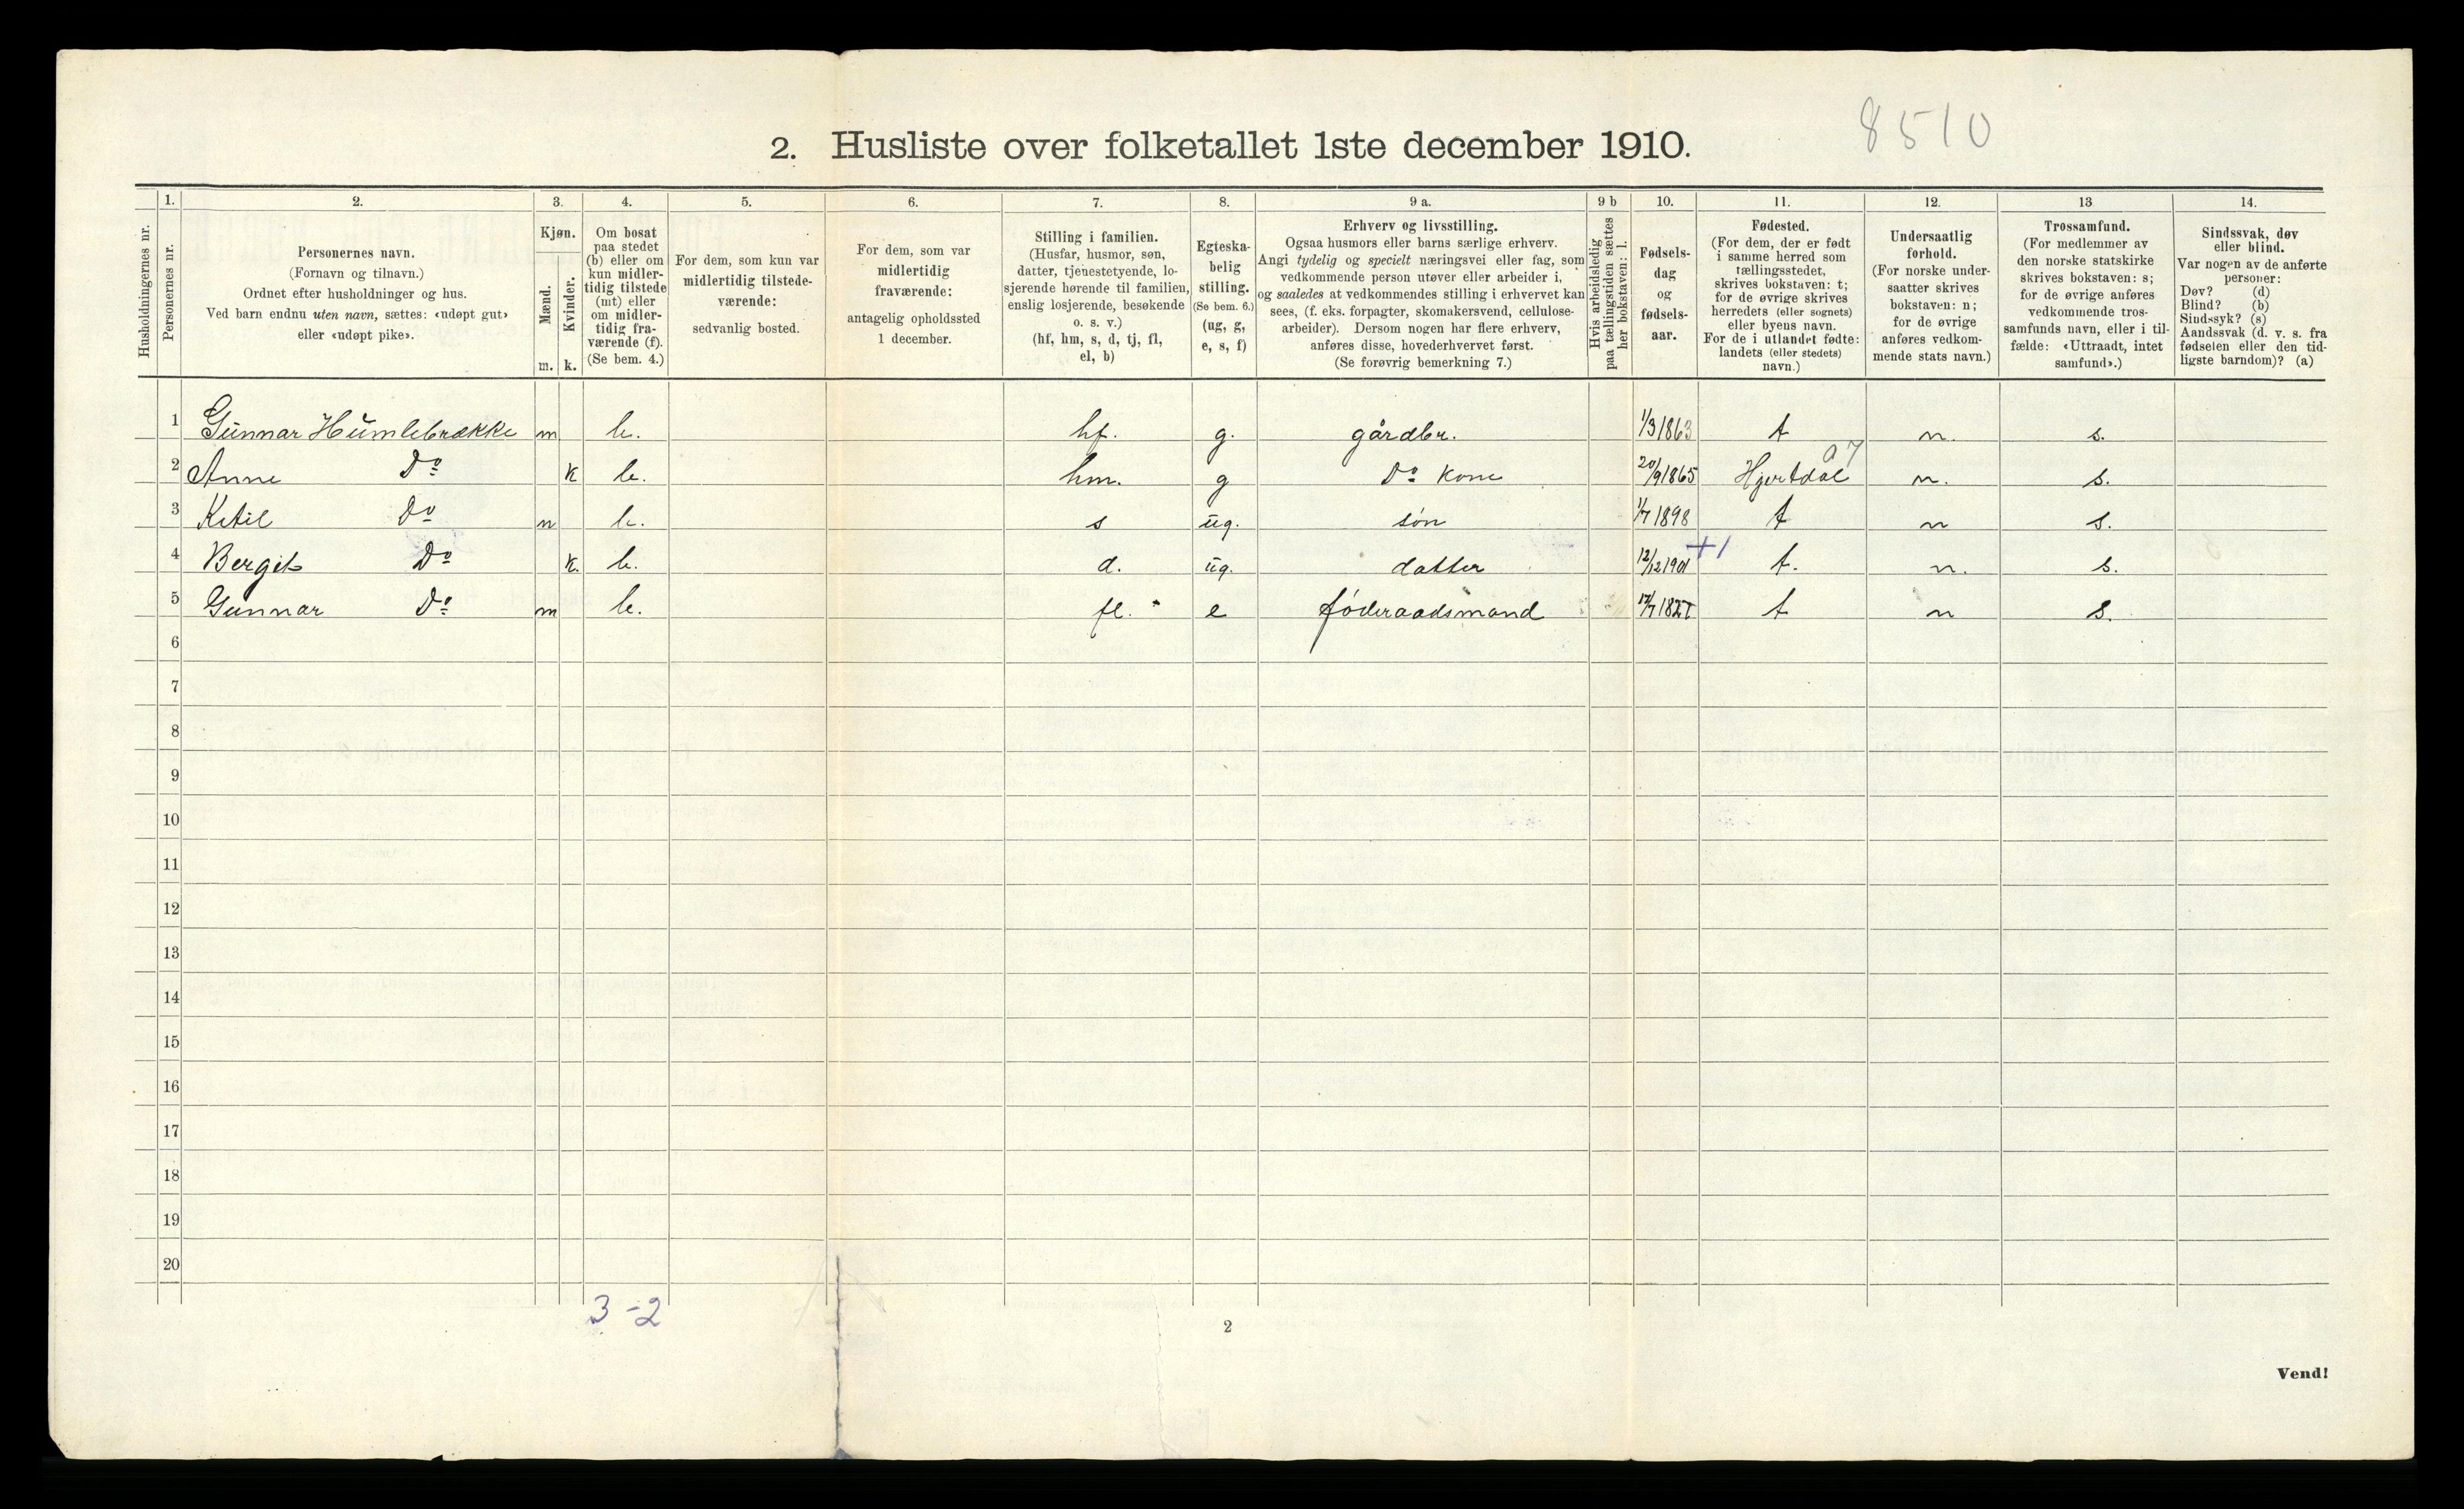 8510
2. Husliste over folketallet 1ste december 1910.
Husholdningernes nr.
1.
Personernes nr.
2.
Personernes navn.
(Fornavn og tilnavn.)
Ordnet efter husholdninger og hus.
Ved barn endnu uten navn, sættes: «udøpt gut»
eller «udøpt pike».
3.
Kjøn.
Mænd.
Kvinder.
m. k.
4.
Om bosat
paa stedet
(b) eller om
kun midler-
tidig tilstede
(mt) eller
om midler-
tidig fra-
værende (f).
(Se bem. 4.)
5.
For dem, som kun var
midlertidig tilstede-
værende:
sedvanlig bosted.
6.
For dem, som var
midlertidig
fraværende:
antagelig opholdssted
1 december.
7.
Stilling i familien.
(Husfar, husmor, søn,
datter, tjenestetyende, lo-
sjerende hørende til familien,
enslig losjerende, besøkende
o. s. v.)
(hf, hm, s, d, tj, fl,
el, b)
8.
Egteska-
belig
stilling.
(Se bem. 6.)
(ug, g,
e, s, f)
9 a.
Erhverv og livsstilling.
Ogsaa husmors eller barns særlige erhverv.
Angi tydelig og specielt næringsvei eller fag, som
vedkommende person utøver eller arbeider i,
og saaledes at vedkommendes stilling i erhvervet kan
sees, (f. eks. forpagter, skomakersvend, cellulose-
arbeider). Dersom nogen har flere erhverv,
anføres disse, hovederhvervet først.
(Se forøvrig bemerkning 7.)
9 b
Hvis arbeidsledig
paa tællingstiden sættes
her bokstaven: l.
10.
Fødsels-
dag
og
fødsels-
aar.
11.
Fødested.
(For dem, der er født
i samme herred som
tællingsstedet,
skrives bokstaven: t;
for de øvrige skrives
herredets (eller sognets)
eller byens navn.
For de i utlandet fødte:
landets (eller stedets)
navn.)
12.
Undersaatlig
forhold.
(For norske under-
saatter skrives
bokstaven: n;
for de øvrige
anføres vedkom-
mende stats navn.)
13
Trossamfund.
(For medlemmer av
den norske statskirke
skrives bokstaven: s;
for de øvrige anføres
vedkommende tros-
samfunds navn, eller i til-
fælde: «Uttraadt, intet
samfund».)
14.
Sindssvak, døv
eller blind.
Var nogen av de anførte
personer:
Døv? (d)
Blind? (b)
Sindssyk? (s)
Aandssvak (d. v. s. fra
fødselen eller den tid-
ligste barndom)? (a)
1 Gunnar Humlebrække m b. hf. g. gårdbr. 1/3 1863 t n. s.
2 Anne Do k b. hm. g Do kone 20/9 1865 Hjertdal 07 n. s.
3 Ketil Do m b. s ug. søn 1/7 1898 t n s.
4 Bergit Do k. b. d. ug. datter 12/12 1901 +1 t. n. s.
5 Gunnar Do m b. fl. e føderaadsmand t n s.
6
7
8
9
10
11
12
13
14
15
16
17
18
19
20
3-2
2
Vend!